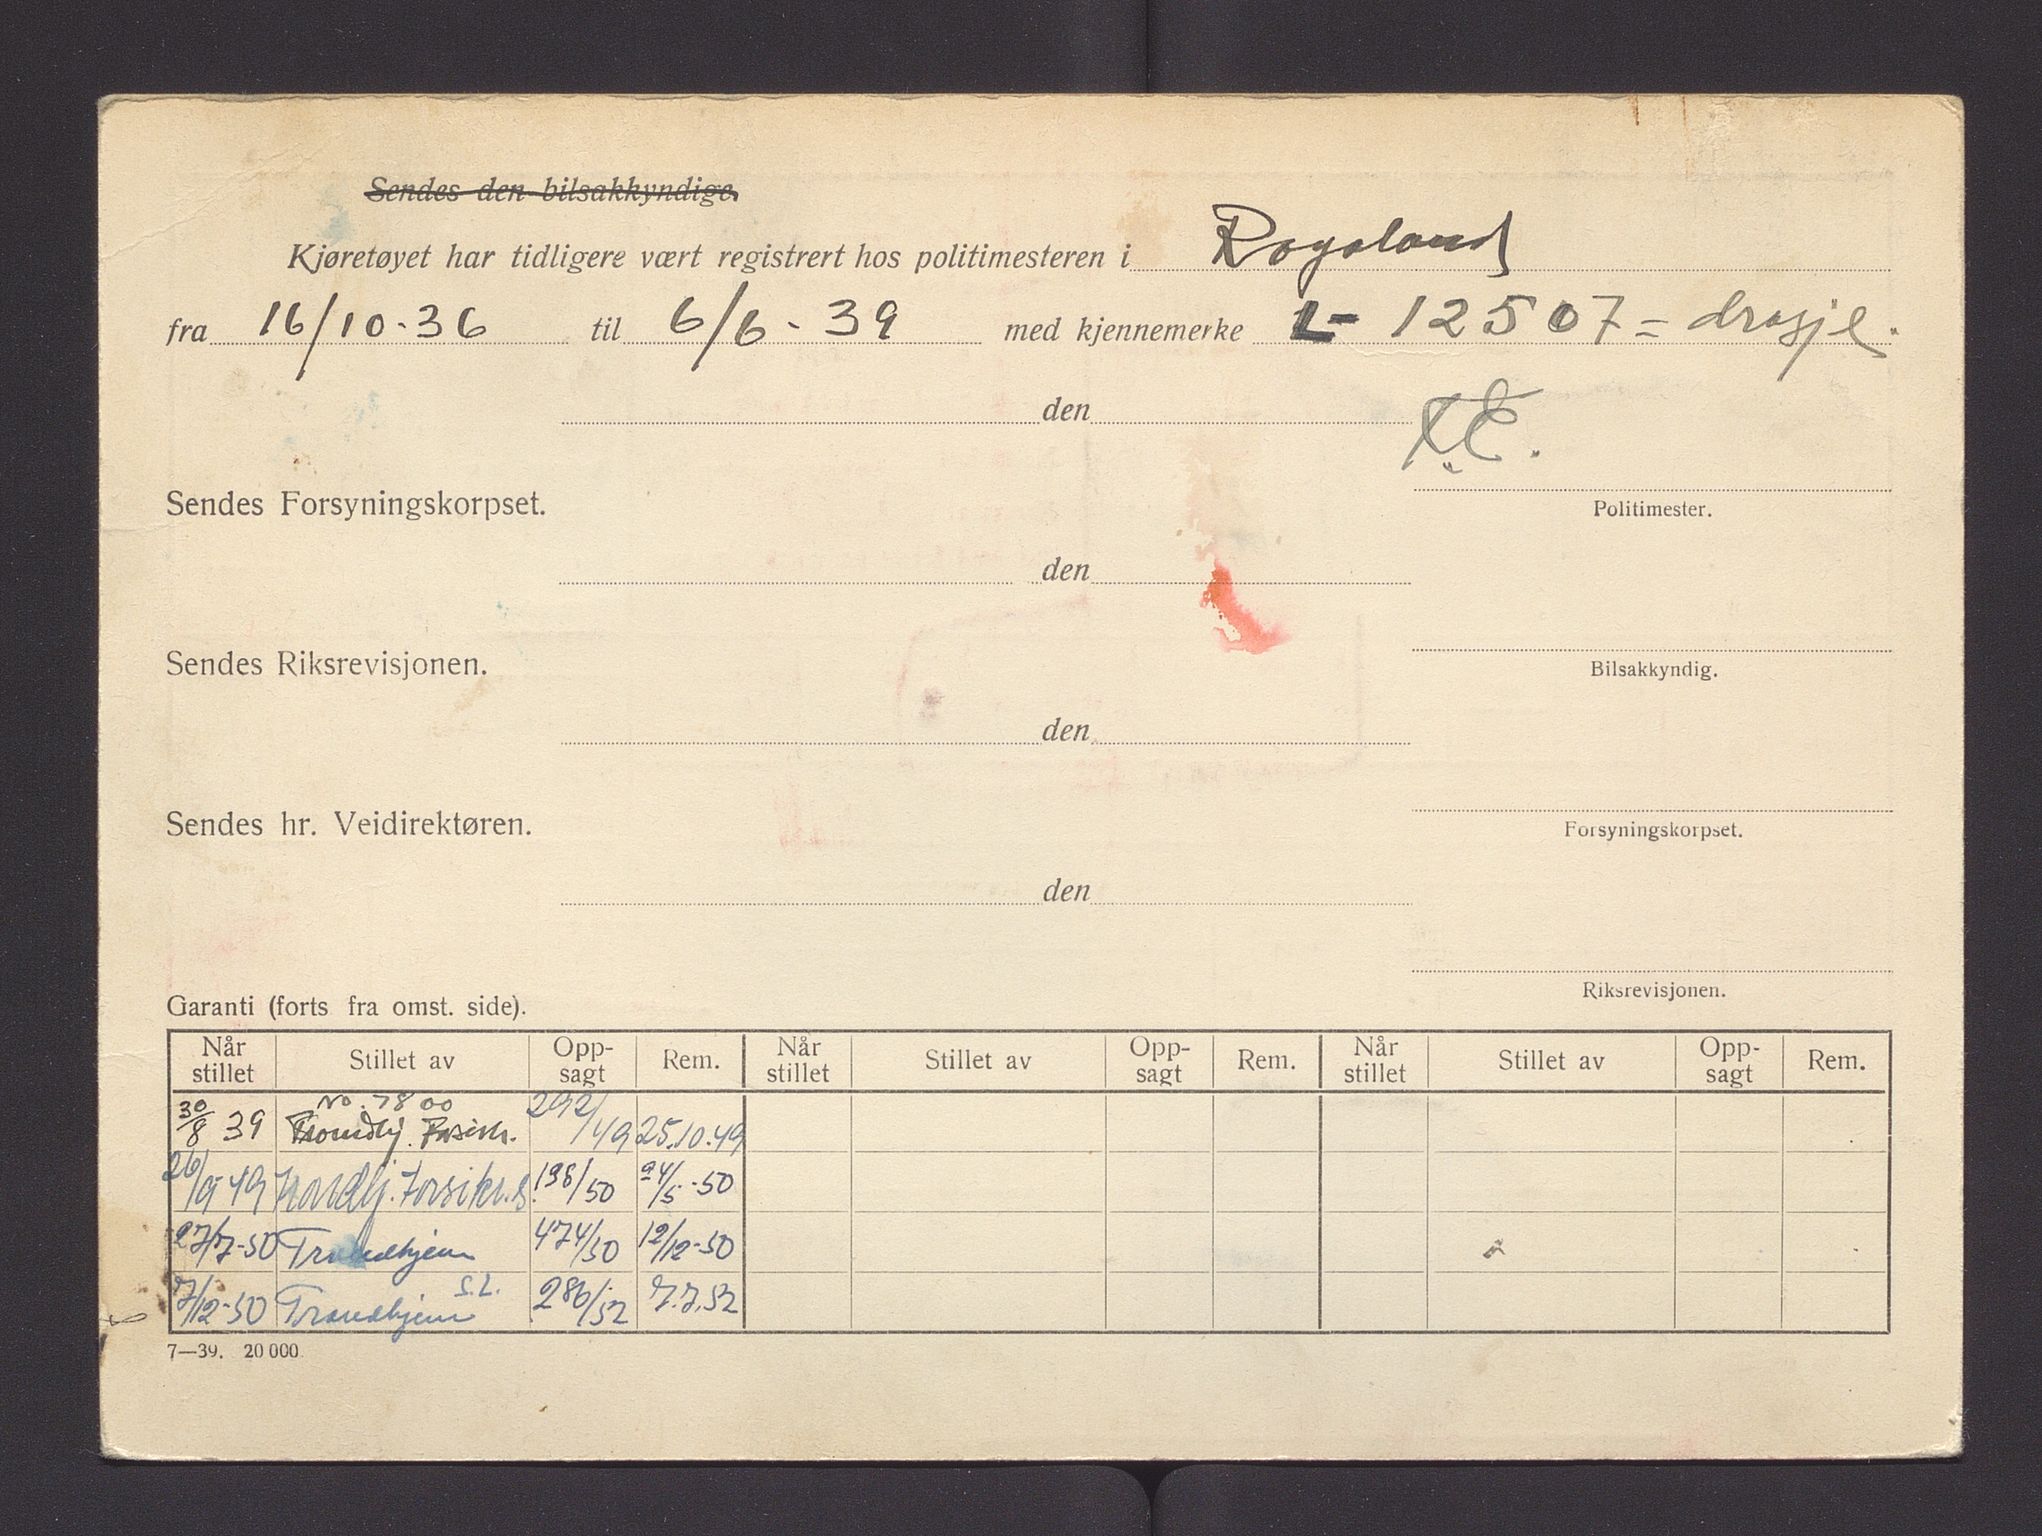 Sendes den bilsakkyndige.
Kjøretøyet har tidligere vært registrert hos politimesteren i Rogaland
fra 16/10-36 til 6/6-39 med kjennemerke L-12507= drosje.
den
Sendes Forsyningskorpset.
Politimester.
den
Sendes Riksrevisjonen.
Bilsakkyndig.
den
Sendes hr. Veidirektøren.
Forsyningskorpset.
den
Riksrevisjonen.
Garanti (forts fra omst. side).
Når stillet Stillet av Opp-sagt Rem. Når stillet Stillet av Opp-sagt Rem. Når stillet Stillet av Opp-sagt Rem.
No. 7800
30/8 39 Trondhj. Forsikr. 292/49 25.10.49
26/9-49 Trondhj. Forsikr.s. 198/50 24/5-50
27/7-50 Trondhjem 474/50 12/12-50
S.L.
7/12-50 Trondhjem 286/52 7.7.52
7—39. 20 000